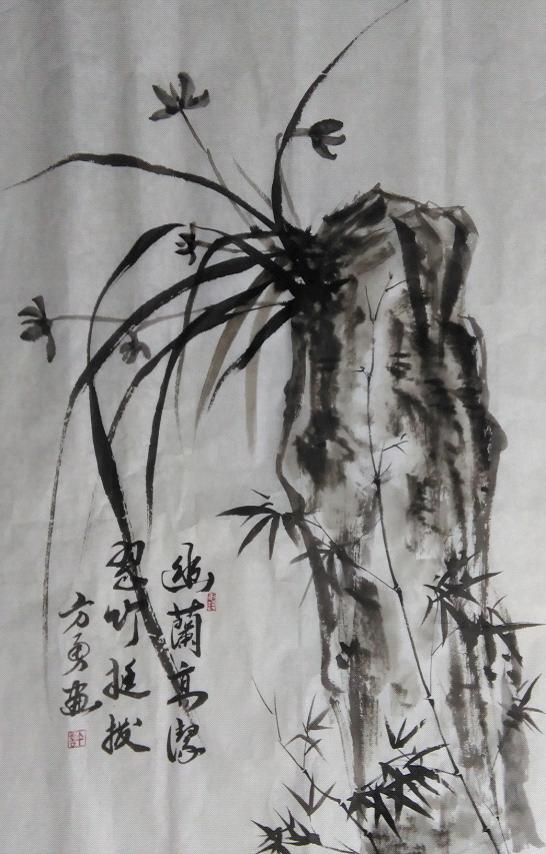 幽蘭高潔
翠竹挺拔
方勇画